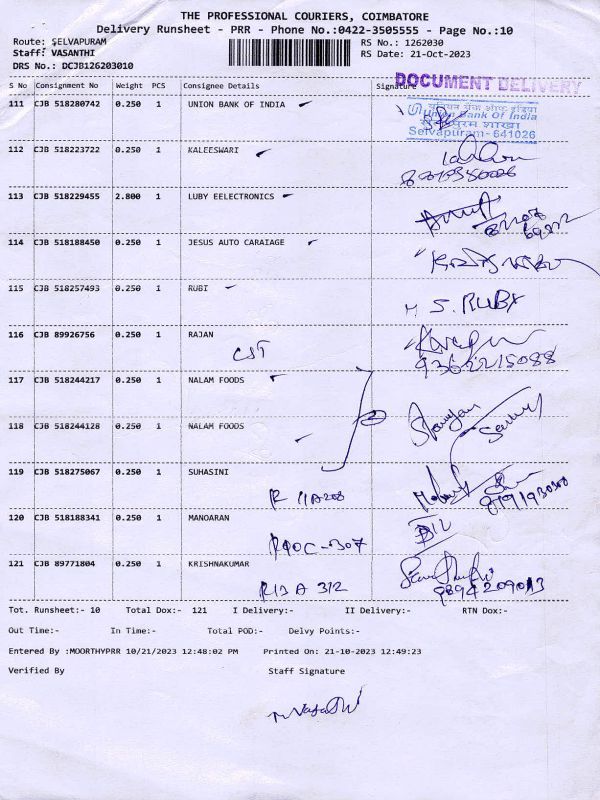 THE PROFESSIONAL COURIERS, COIMBATORE
Delivery Runsheet - PRR - Phone No.:0422-3505555 - Page No.:10
Route: SELVAPURAM RS No.: 1262030
Staff: VASANTHI RS Date: 21-Oct-2023
DRS No.: DCJB126203010
DOCUMENT DELIVERY
S No Consignment No Weight PCS Consignee Details Signature
111 CJB 518280742 0.250 1 UNION BANK OF INDIA
यूनियन बैंक ऑफ इंडिया
Union Bank Of India
Selvapuram- 641026
112 CJB 518223722 0.250 1 KALEESWARI
113 CJB 518229455 2.800 1 LUBY EELECTRONICS
114 CJB 518188450 0.250 1 JESUS AUTO CARAIAGE
115 CJB 518257493 0.250 1 RUBI
S. RUBY
116 CJB 89926756 0.250 1 RAJAN
CST
9362215088
117 CJB 518244217 0.250 1 NALAM FOODS
118 CJB 518244128 0.250 1 NALAM FOODS
119 CJB 518275067 0.250 1 SUHASINI
120 CJB 518188341 0.250 1 MANOARAN
121 CJB 89771804 0.250 1 KRISHNAKUMAR
R13 A 312
Tot. Runsheet:- 10 Total Dox:- 121 I Delivery:- II Delivery:- RTN Dox:-
Out Time:- In Time:- Total POD:- Delvy Points:-
Entered By :MOORTHYPRR 10/21/2023 12:48:02 PM Printed On: 21-10-2023 12:49:23
Verified By Staff Signature